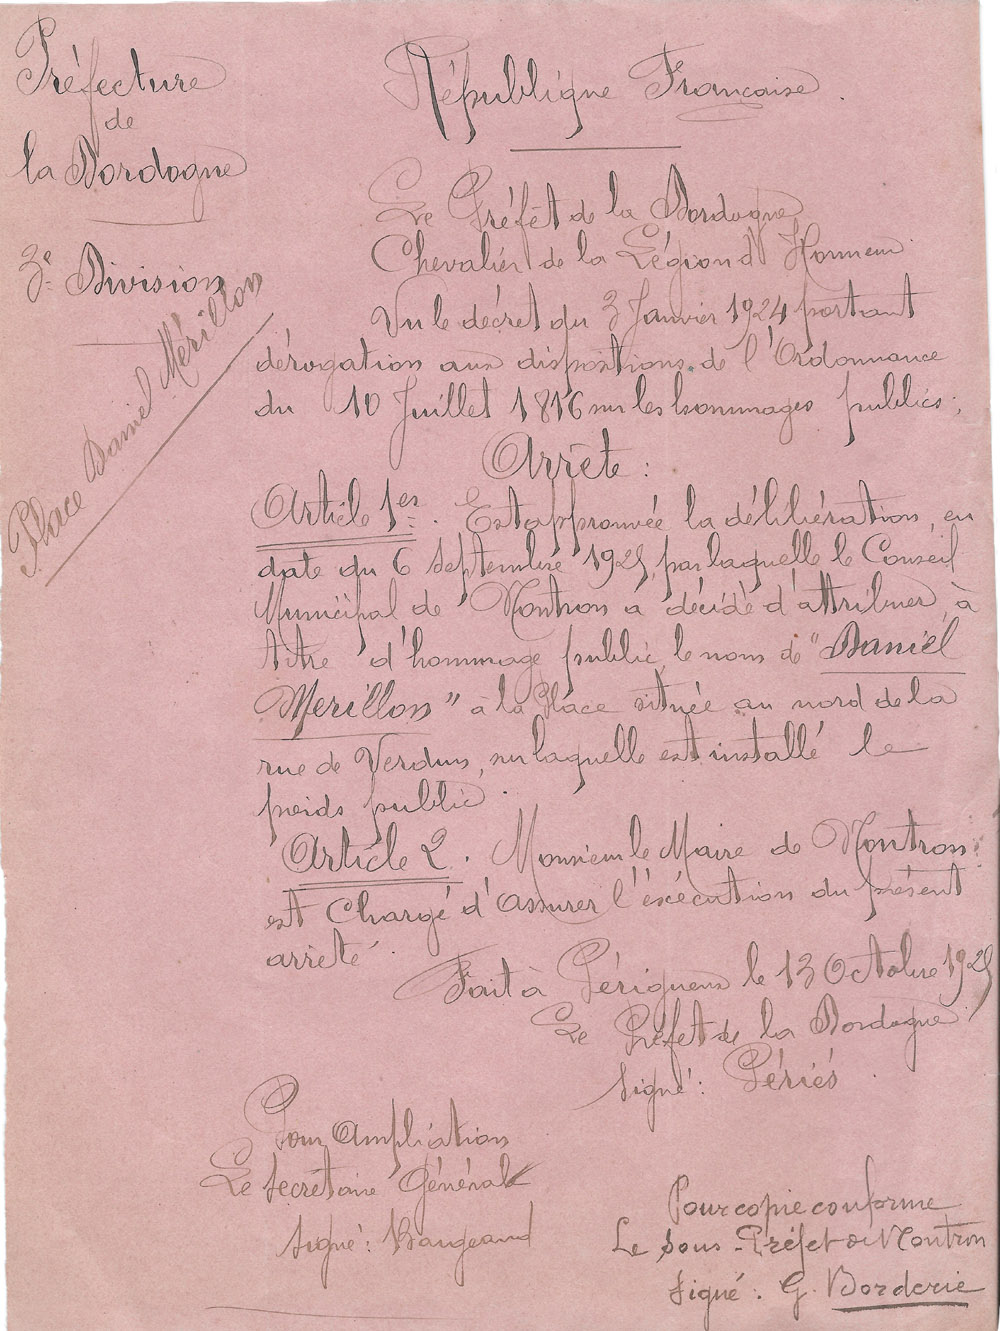 Préfecture
de
la Dordogne
3e Division
Place Daniel Mérillon
République Française.
Le Préfet de la Dordogne
Chevalier de la Légion d'Honneur
Vu le décret du 3 Janvier 1924 portant
dérogation aux dispositions de l'Ordonnance
du 10 Juillet 1816 sur les hommages publics;
Arrête :
Article 1er. Est approuvée la délibération, en
date du 6 Septembre 1925, par laquelle le Conseil
Municipal de Nontron a décidé d'attribuer, à
titre d'hommage public, le nom de "Daniel
Merillon" à la Place située au nord de la
rue de Verdun, sur laquelle est installé le
poids public.
Article 2. Monsieur le Maire de Nontron
est Chargé d'Assurer l'éxécution du présent
arrêté.
Fait à Périgueux le 13 Octobre 1925
Le Préfet de la Dordogne
Signé : Périés.
Pour Ampliation
Le Secrétaire Général
Signé :
Pour copie conforme
Le Sous-Préfet de Nontron
Signé : G. Borderie